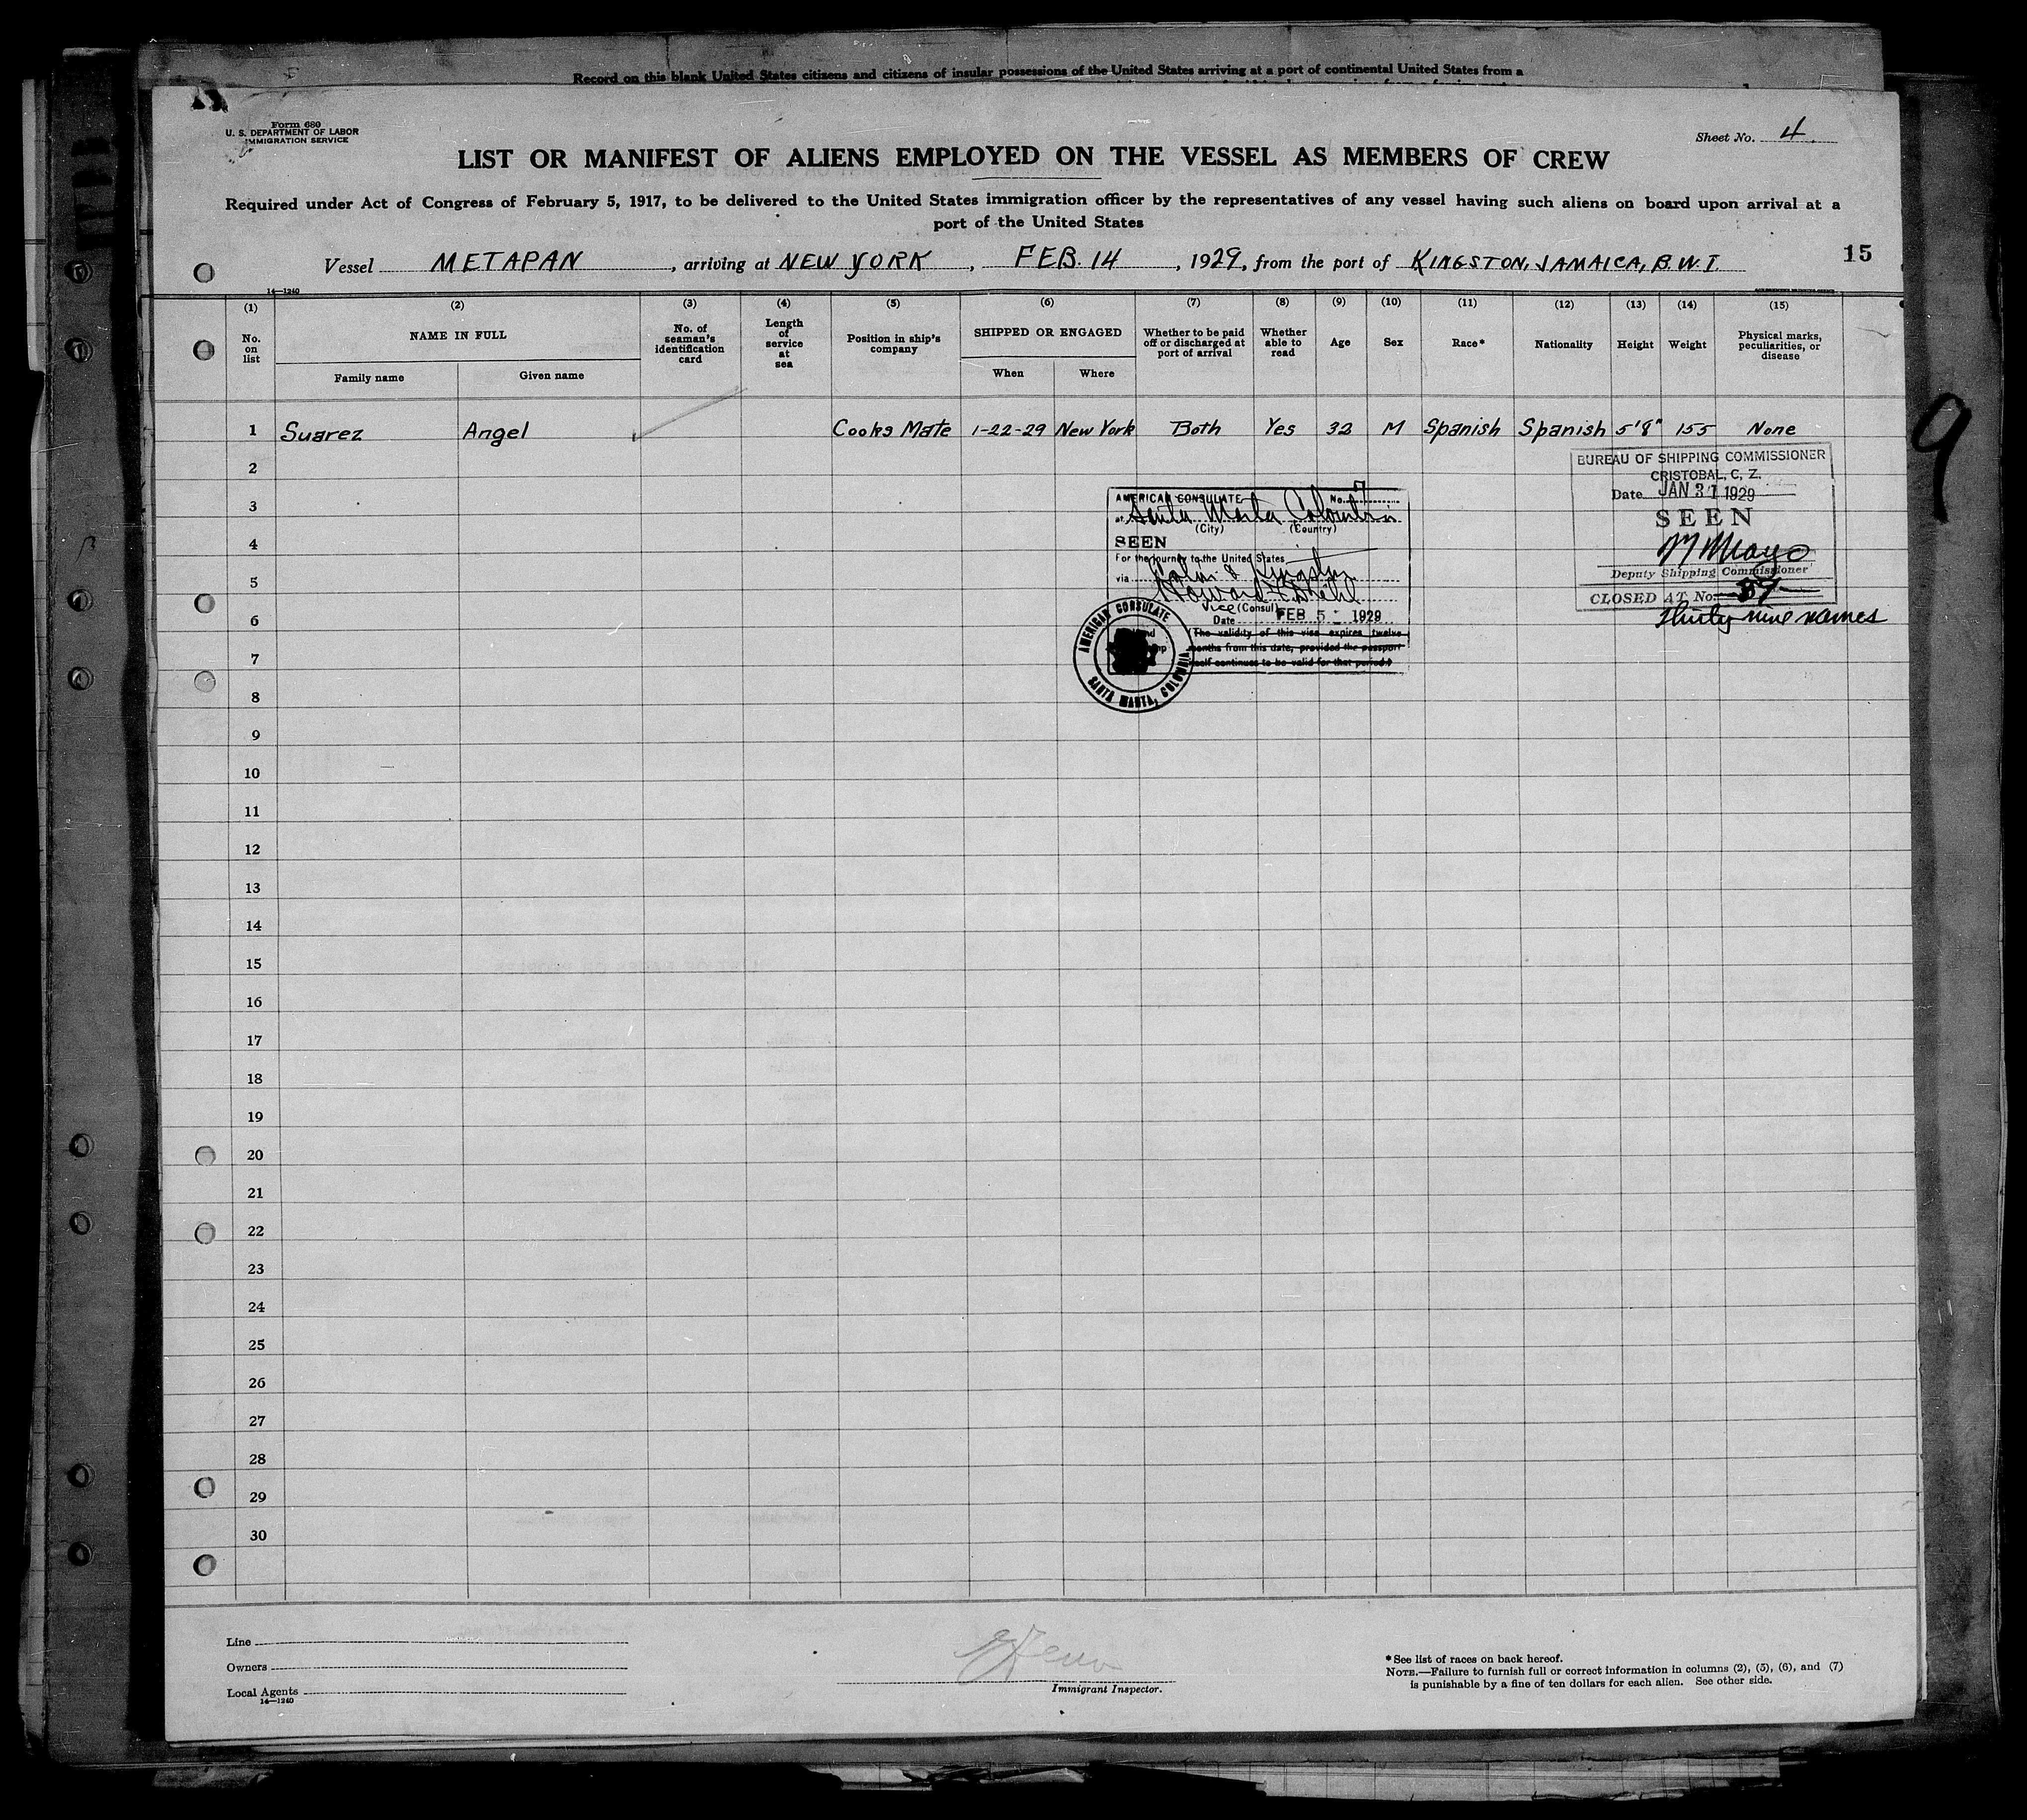 Record on this blank United States citizens and citizens of insular possessions of the United States arriving at a port of continental United States from a
Form 680
U. S. DEPARTMENT OF LABOR
IMMIGRATION SERVICE
Sheet No. 4.
LIST OR MANIFEST OF ALIENS EMPLOYED ON THE VESSEL AS MEMBERS OF CREW
Required under Act of Congress of February 5, 1917, to be delivered to the United States immigration officer by the representatives of any vessel having such aliens on board upon arrival at a
port of the United States
Vessel METAPAN, arriving at NEW YORK, FEB. 14, 1929, from the port of KINGSTON, JAMAICA, B.W.I.
15
14—1240
(1) (2) (3) (4) (5) (6) (7) (8) (9) (10) (11) (12) (13) (14) (15)
No. on list
NAME IN FULL
Family name
Given name
No. of seaman's identification card
Length of service at sea
Position in ship's company
SHIPPED OR ENGAGED
When
Where
Whether to be paid off or discharged at port of arrival
Whether able to read
Age
Sex
Race*
Nationality
Height
Weight
Physical marks, peculiarities, or disease
1 Suarez Angel Cooks Mate 1-22-29 New York Both Yes 32 M Spanish Spanish 5'8" 155 None
9
2
3
4
5
6
7
8
9
10
11
12
13
14
15
16
17
18
19
20
21
22
23
24
25
26
27
28
29
30
AMERICAN CONSULATE No. 7
at Santa Marta Colombia
(City) (Country)
SEEN
For the journey to the United States
via Colon & Kingston
Howard
Vice (Consul)
Date FEB 5 - 1929
(The validity of this visa expires twelve
months from this date, provided the passport
itself continues to be valid for that period.)
AMERICAN CONSULATE
SANTA MARTA, COLOMBIA
BUREAU OF SHIPPING COMMISSIONER
CRISTOBAL, C. Z.
Date JAN 31 1929
SEEN
Deputy Shipping Commissioner
CLOSED AT No. 39
Thirty nine names
Line
Owners
Local Agents
14—1240
Immigrant Inspector.
*See list of races on back hereof.
NOTE.—Failure to furnish full or correct information in columns (2), (5), (6), and (7)
is punishable by a fine of ten dollars for each alien. See other side.